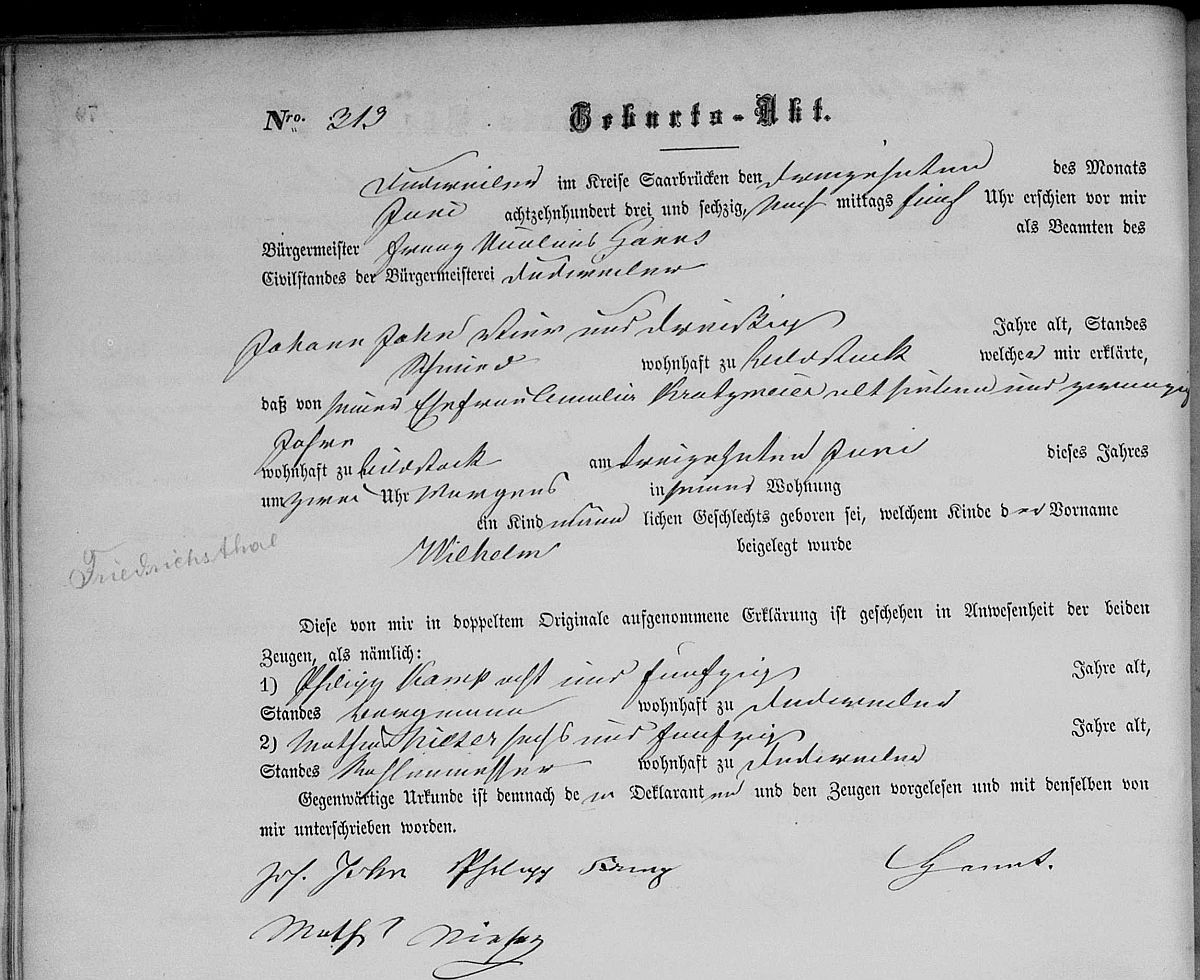 Nro. 313 Geburts-Akt.
Dudweiler im Kreise Saarbrücken den dreizehnten des Monats
Juni achtzehnhundert drei und sechzig, Nach mittags fünf Uhr erschien vor mir
Bürgermeister Franz als Beamten des
Civilstandes der Bürgermeisterei Dudweiler
Johann John vier und dreißig Jahre alt, Standes
Schmied wohnhaft zu Bildstock welcher mir erklärte,
daß von seiner Ehefrau Amalia Kratzmeier alt sieben und zwanzig
Jahre
wohnhaft zu Bildstock am dreizehnten Juni dieses Jahres
um zwei Uhr Morgens in seiner Wohnung
ein Kind männ lichen Geschlechts geboren sei, welchem Kinde der Vorname
Friedrichsthal
Wilhelm beigelegt wurde
Diese von mir in doppeltem Originale aufgenommene Erklärung ist geschehen in Anwesenheit der beiden
Zeugen, als nämlich:
1) Philipp Kamp acht und fünfzig Jahre alt,
Standes Bergmann wohnhaft zu Dudweiler
2) Mathias sechs und fünfzig Jahre alt,
Standes Kohlenmesser wohnhaft zu Dudweiler
Gegenwärtige Urkunde ist demnach dem Deklaranten und den Zeugen vorgelesen und mit denselben von
mir unterschrieben worden.
Joh. John Philipp Kamp
Math